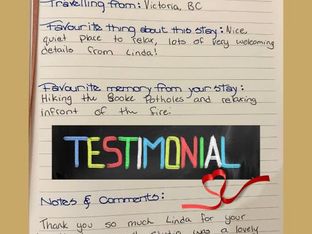 Travelling from: Victoria, BC
Favourite thing about this stay: Nice,
quiet place to relax, lots of very welcoming
details from Linda!
Favourite memory from your stay:
Hiking the Sooke Potholes and relaxing
infront of the fire.
TESTIMONIAL
Notes & Comments:
Thank you so much Linda for your
was a lovely